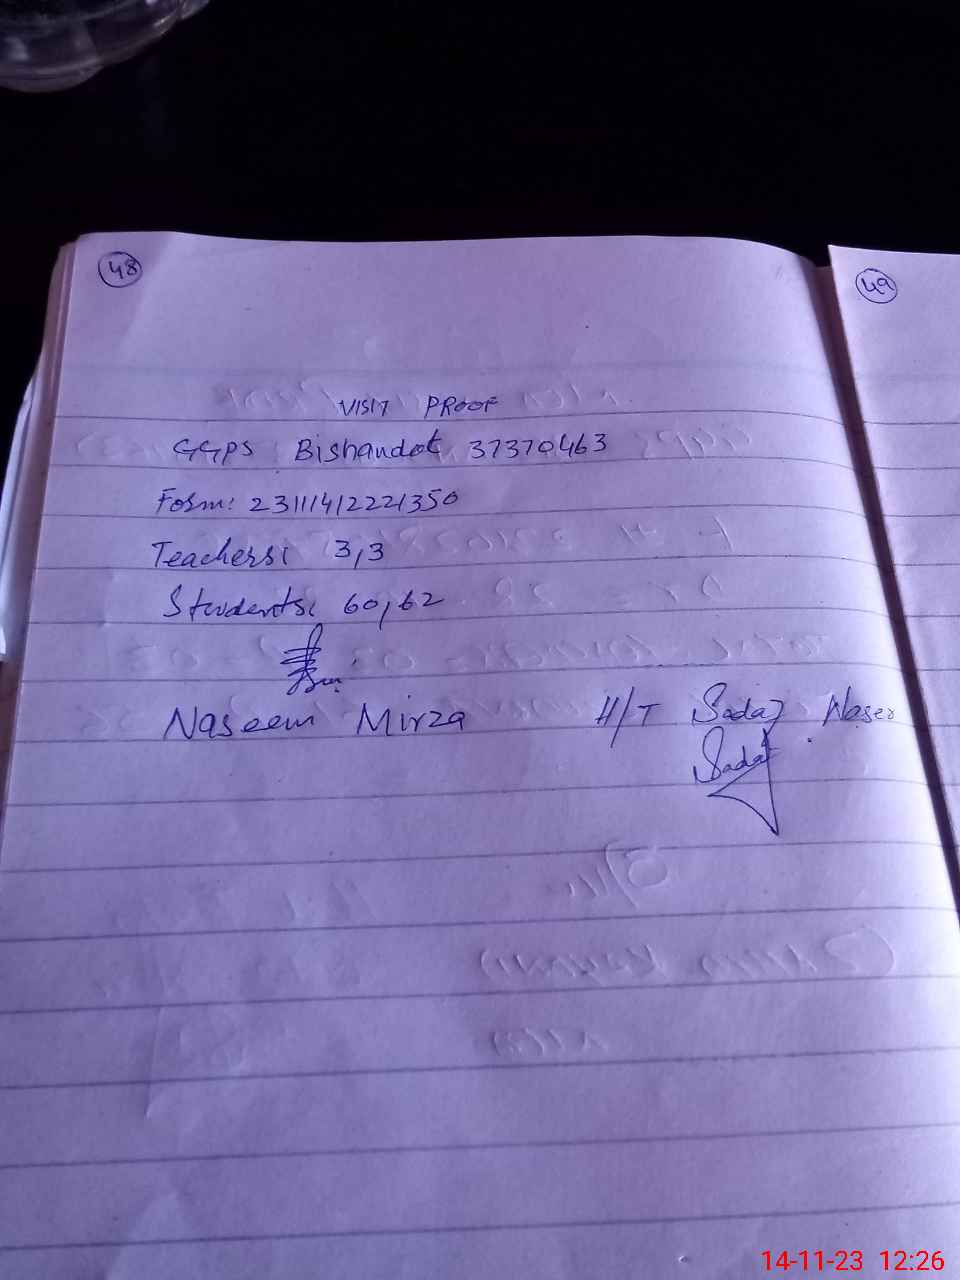 48
49
VISIT PROOF
GGPS Bishandot 37370463
Form: 23111412221350
Teachers: 3,3
Students: 60,62
Naseem Mirza
H/T Sadaf
Sadaf
14-11-23 12:26